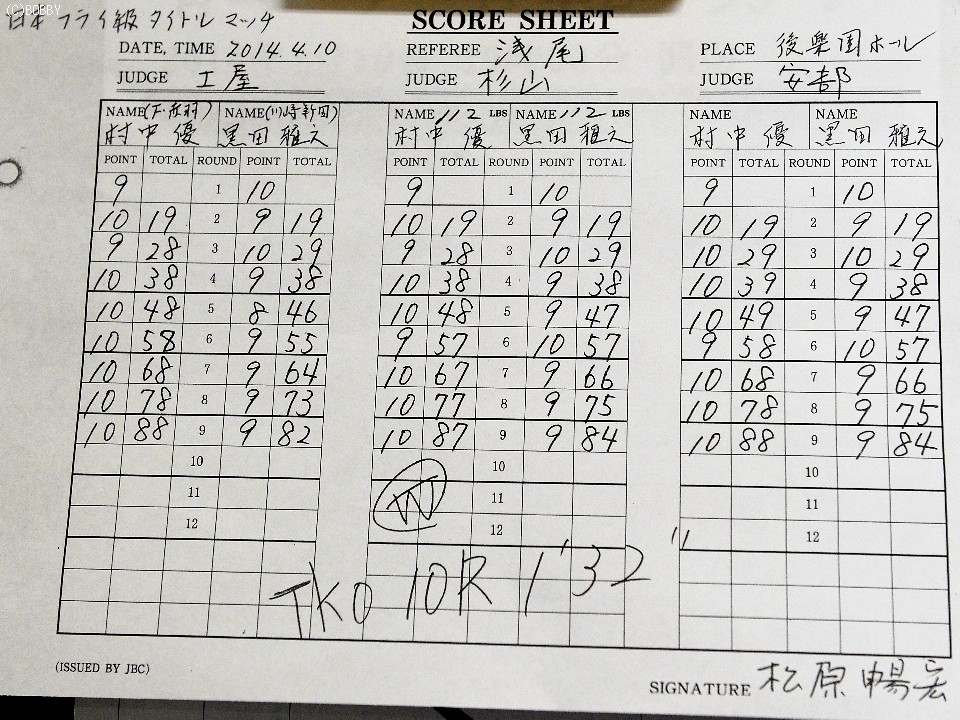 (C)BOBBY
日本フライ級タイトルマッチ
SCORE SHEET
DATE, TIME 2014.4.10 REFEREE 浅尾 PLACE 後楽園ホール
JUDGE 土屋 JUDGE 杉山 JUDGE 安部
NAME (川崎新田) NAME 112 LBS NAME 112 LBS NAME NAME
村中 優 黒田 雅之 村中 優 黒田 雅之 村中 優 黒田 雅之
POINT TOTAL ROUND POINT TOTAL POINT TOTAL ROUND POINT TOTAL POINT TOTAL ROUND POINT TOTAL
9 1 10 9 1 10 9 1 10
10 19 2 9 19 10 19 2 9 19 10 19 2 9 19
9 28 3 10 29 9 28 3 10 29 10 29 3 10 29
10 38 4 9 38 10 38 4 9 38 10 39 4 9 38
10 48 5 8 46 10 48 5 9 47 10 49 5 9 47
10 58 6 9 55 9 57 6 10 57 9 58 6 10 57
10 68 7 9 64 10 67 7 9 66 10 68 7 9 66
10 78 8 9 73 10 77 8 9 75 10 78 8 9 75
10 88 9 9 82 10 87 9 9 84 10 88 9 9 84
10 10 10
11 W 11 11
12 12 12
TKO 10R 1'32"
(ISSUED BY JBC)
SIGNATURE 松原暢宏